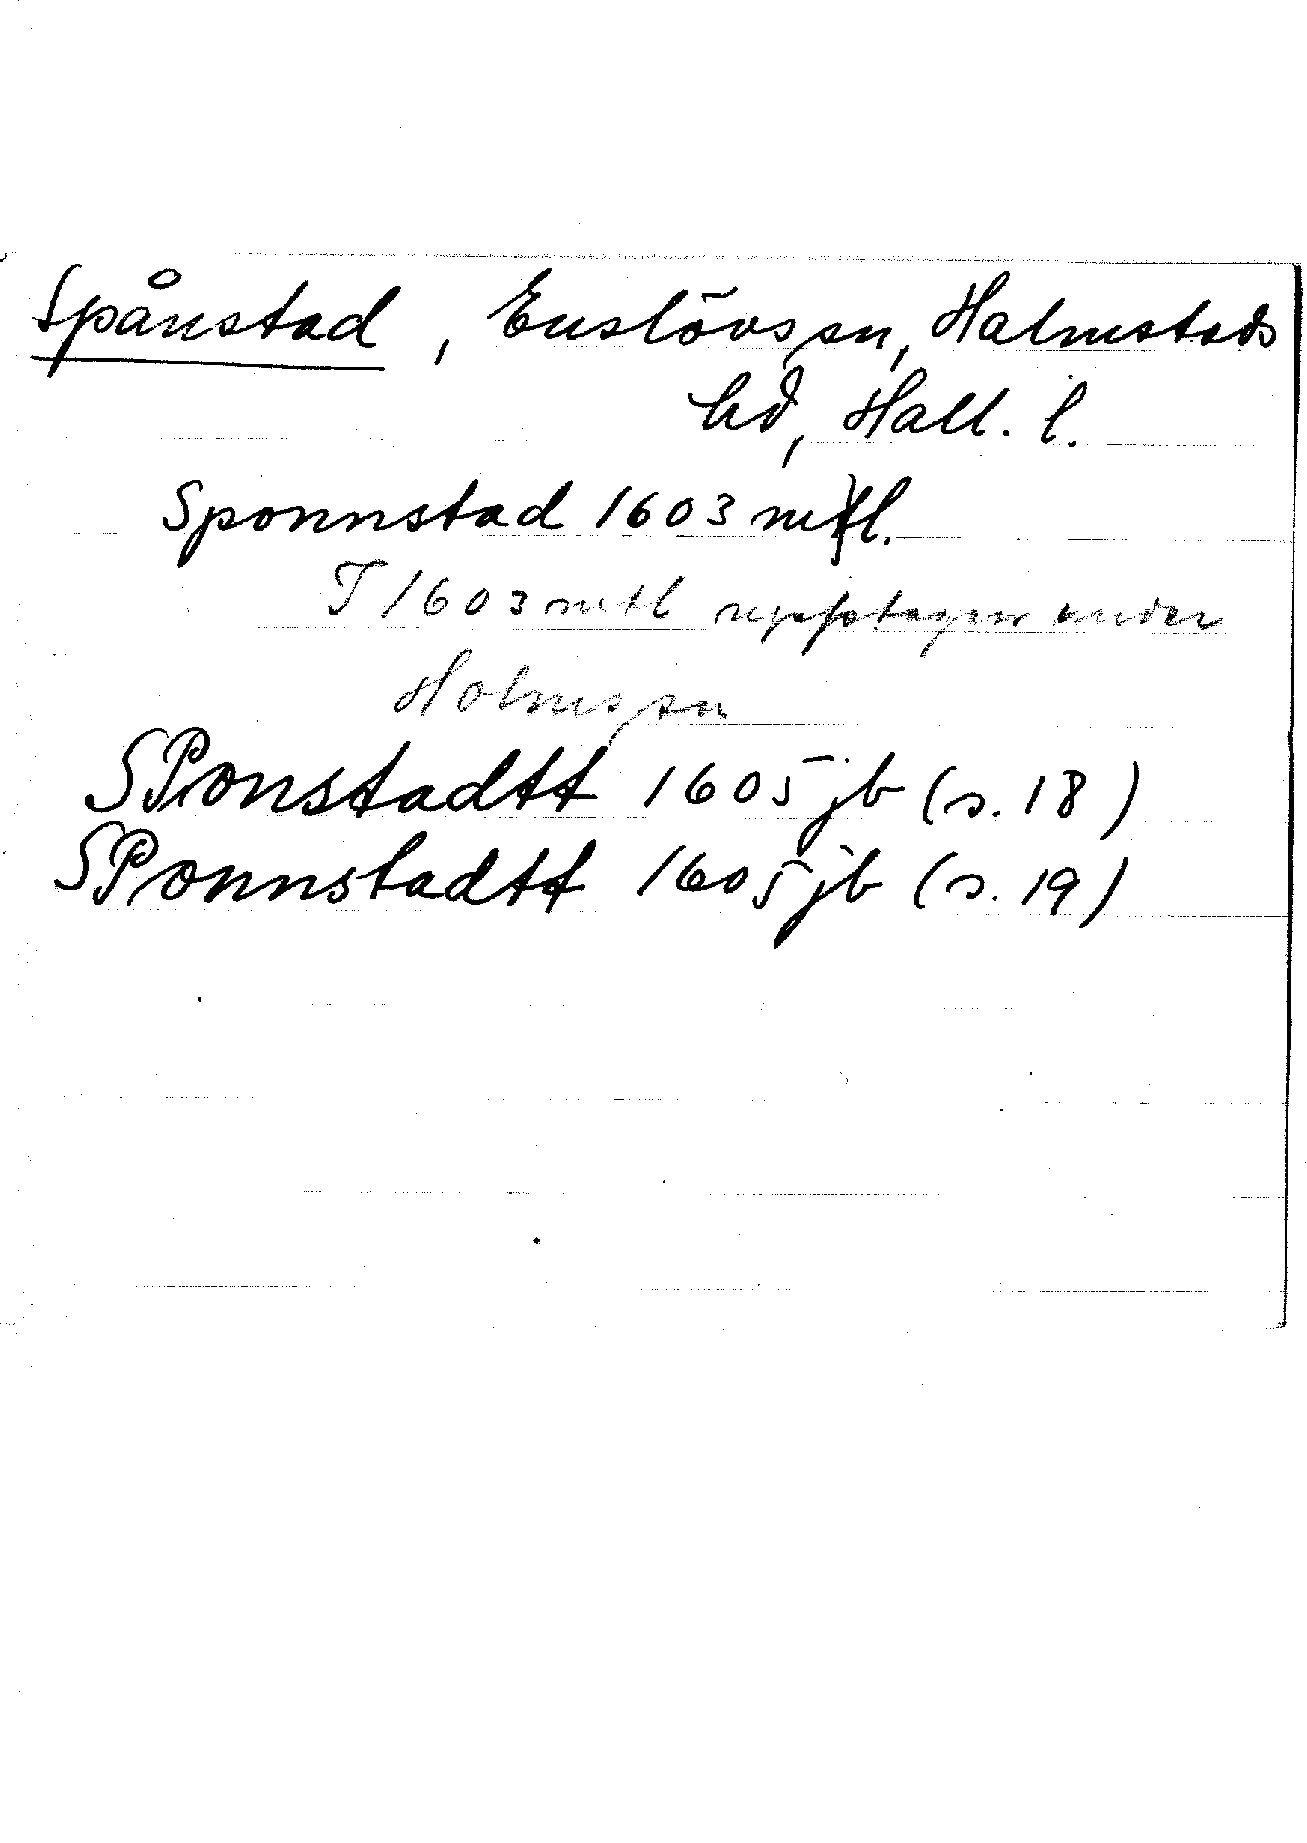 Spånstad, Enslövs sn, Halmstads
hd, Hall. l.
Sponnstad 1603 mtl.
I 1603 mtl upptagen under
Holms sn
SPonstadtt 1605 jb (s. 18)
SPonnstadtt 1605 jb (s. 19)